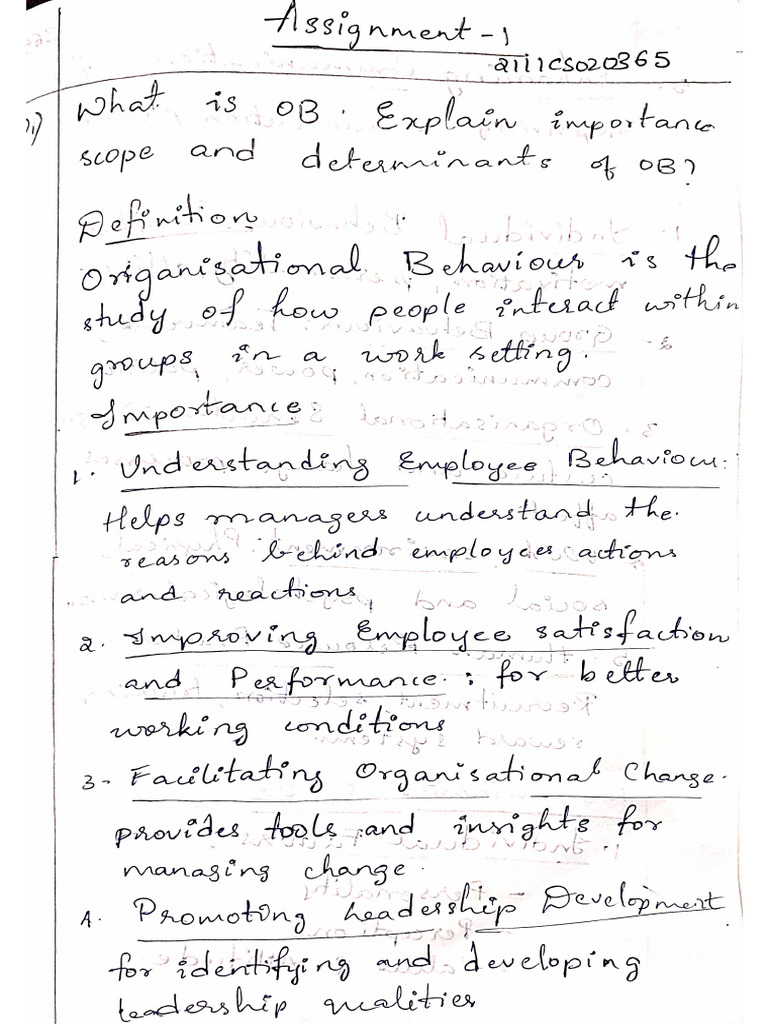 Assignment - 1
2111CS020365
1) What is OB. Explain importance
scope and determinants of OB?
Definition
Organisational Behaviour is the
study of how people interact within
groups in a work setting.
Importance
1. Understanding Employee Behaviour:
Helps managers understand the
reasons behind employees actions
and reactions
2. Improving Employee satisfaction
and Performance : for better
working conditions
3- Facilitating Organisational Change.
provides tools and insights for
managing change.
4. Promoting Leadership Development
for identifying and developing
leadership qualities